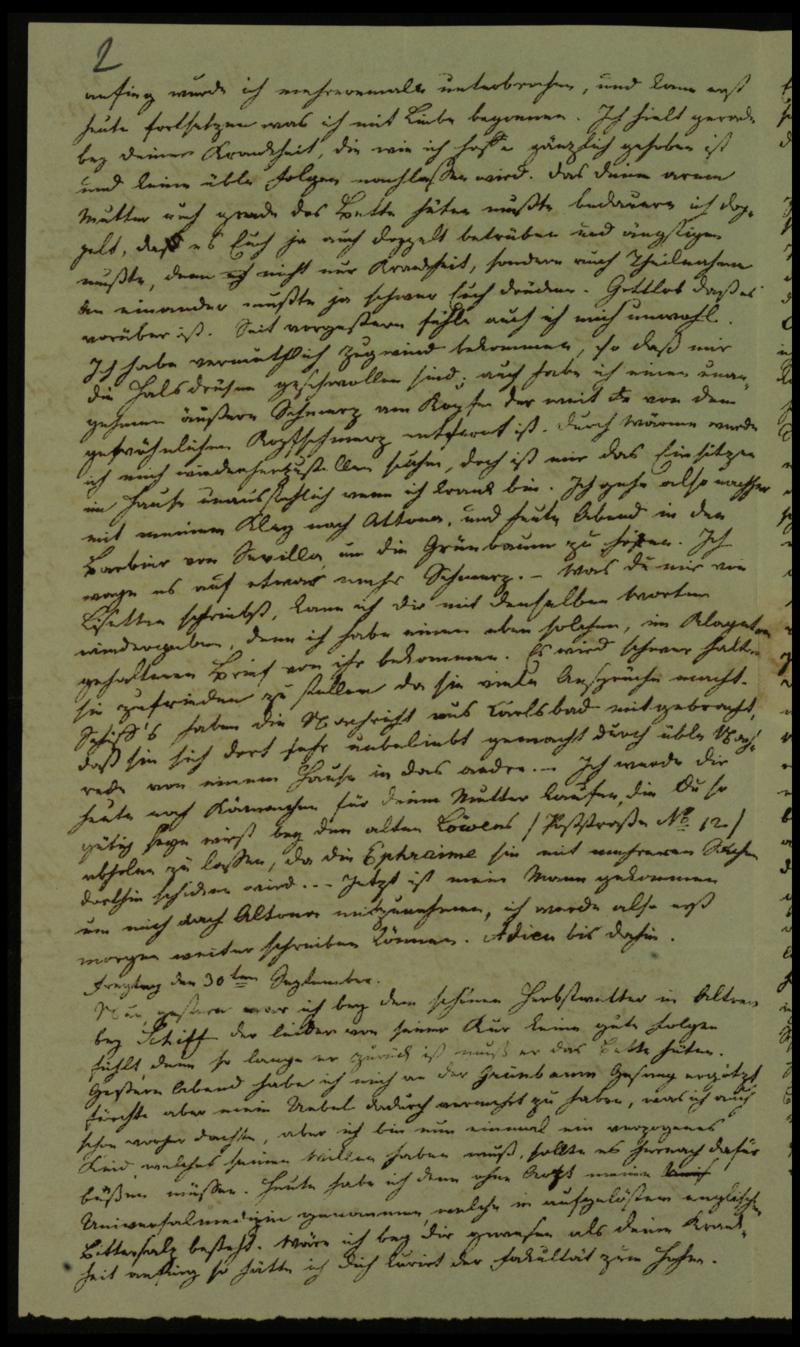 2
anfing wurde ich mehreremalle unterbrochen, und kann erst
heute fortsetzen was ich mit Liebe begonnen. Ich hielt gerade
bey deiner Krankheit, die wie ich hoffe gänzlich gehoben ist
und keine üble Folgen nachlassen wird. Das deine arme
Mutter auch grade das Bette hüten mußte bedaure ich dop-
pelt, daß es Euch ja auch doppelt betrüben und ängstigen
mußte, denn nicht nur Krankheit, sondern auch Theilnahme
an einander mußte ja schwer Euch drücken. Gottlob daß es
vorüber ist. Seit vorgestern fühle auch ich mich unwohl.
Ich habe vermuthlich Zugwind bekommen, so daß mir
die Halsdrüsen geschwollen sind; auch habe ich einen unan-
gehmen äußern Schmerz am Kopfe der weit von dem
gewöhnlichen Kopfschmerz entfernt ist. Durch Wärme werde
ich mich wiederherzustellen suchen, doch ist mir das Einsitzen
im Hause unausstehlich wenn ich krank bin. Ich gehe also nachher
mit meinem Kley nach Altona, und heute Abend in den
Barbier von Sevilla, um die Grünbaum zu hören. Ich
wage es auf etwas mehr Schmerz. – Was du mir von
Lisetten schreibst, kann ich dir mit denselben Worten
wiedergeben, denn ich habe einen eben solchen, im Klageton
gehaltenen Brief von ihr bekommen. Es wird schwer halten
sie zufrieden zu stellen da sie viele Ansprüche macht.
Schiff's haben die Nachricht aus Carlsbad mitgebracht,
daß sie sich dort sehr unbeliebt gemacht durch üble Nach-
rede von einem Hause in das andre. – Ich werde dir
heute noch für deine Mutter kaufen, die Du so
gütig seyn wirst bey den alten Löwens / Poststraße No 12 /
abholen zu lassen, da die Ephraime sie mit mehreren Sachen
dorthin schicken wird. – Jetzt ist mein Mann gekommen
um mich nach Altona mitzunehmen, ich werde also erst
morgen weiter schreiben können. Adieu bis dahin.
Freytag den 30ten September.
Nun, gestern war ich bey dem schönen Herbstwetter in Altona
bey Schiff der leider von seiner Kur keine gute Folgen
fühlt, denn so lange er zurück ist muß er das Bette hüten.
Gestern Abend habe ich mich an der Grünbaum Gesang ergötzt
fürchte aber mein Uebel dadurch vermehrt zu haben, was ich auch
schon vorher dachte, aber ich bin nun einmal ein verzogenes
Kind, welches seinen Willen haben muß, sollte es hernach dafür
büßen müssen. Heute habe ich denn ohne Arzt meine
Universalmedizin genommen, welche in aufgelöstem englischen
Bittersalz besteht. Wäre ich bey dir gewesen als deine Krank-
heit anfing so hätte ich dich kurirt der Fakultät zum Hohn.